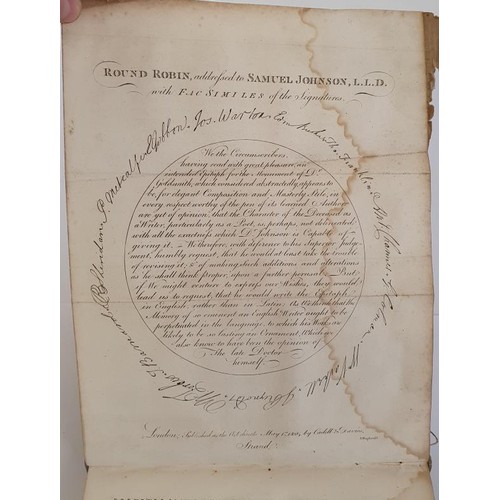 ROUND ROBIN, addressed to SAMUEL JOHNSON, L.L.D.
with FAC SIMILES of the Signatures.
We the Circumscribers,
having read with great pleasure, an
intended Epitaph for the Monument of Dr
Goldsmith, which considered abstractedly, appears to
be, for elegant Composition and Masterly Stile, in
every respect worthy of the pen of its learned Author;
are yet of opinion, that the Character of the Deceased as
a Writer, particularly as a Poet, is, perhaps, not delineated
with all the exactness which Dr Johnson is Capable of
giving it. We therefore, with deference to his Superior Judge-
ment, humbly request, that he would at least take the trouble
of revising it; & of making such additions and alterations
as he shall think proper, upon a further perusal. But
if We might venture to express our Wishes, they would
lead us to request, that he would write the Epitaph
in English, rather than in Latin: As We think that the
Memory of so eminent an English Writer ought to be
perpetuated in the language, to which his Works are
likely to be so lasting an Ornament, Which we
also know to have been the opinion of
The late Doctor
himself.
Gibbon. Jos. Warton. Edm Burke
J Reynolds.
London; Published as the Act directs by Cadell & Davies,
Strand.